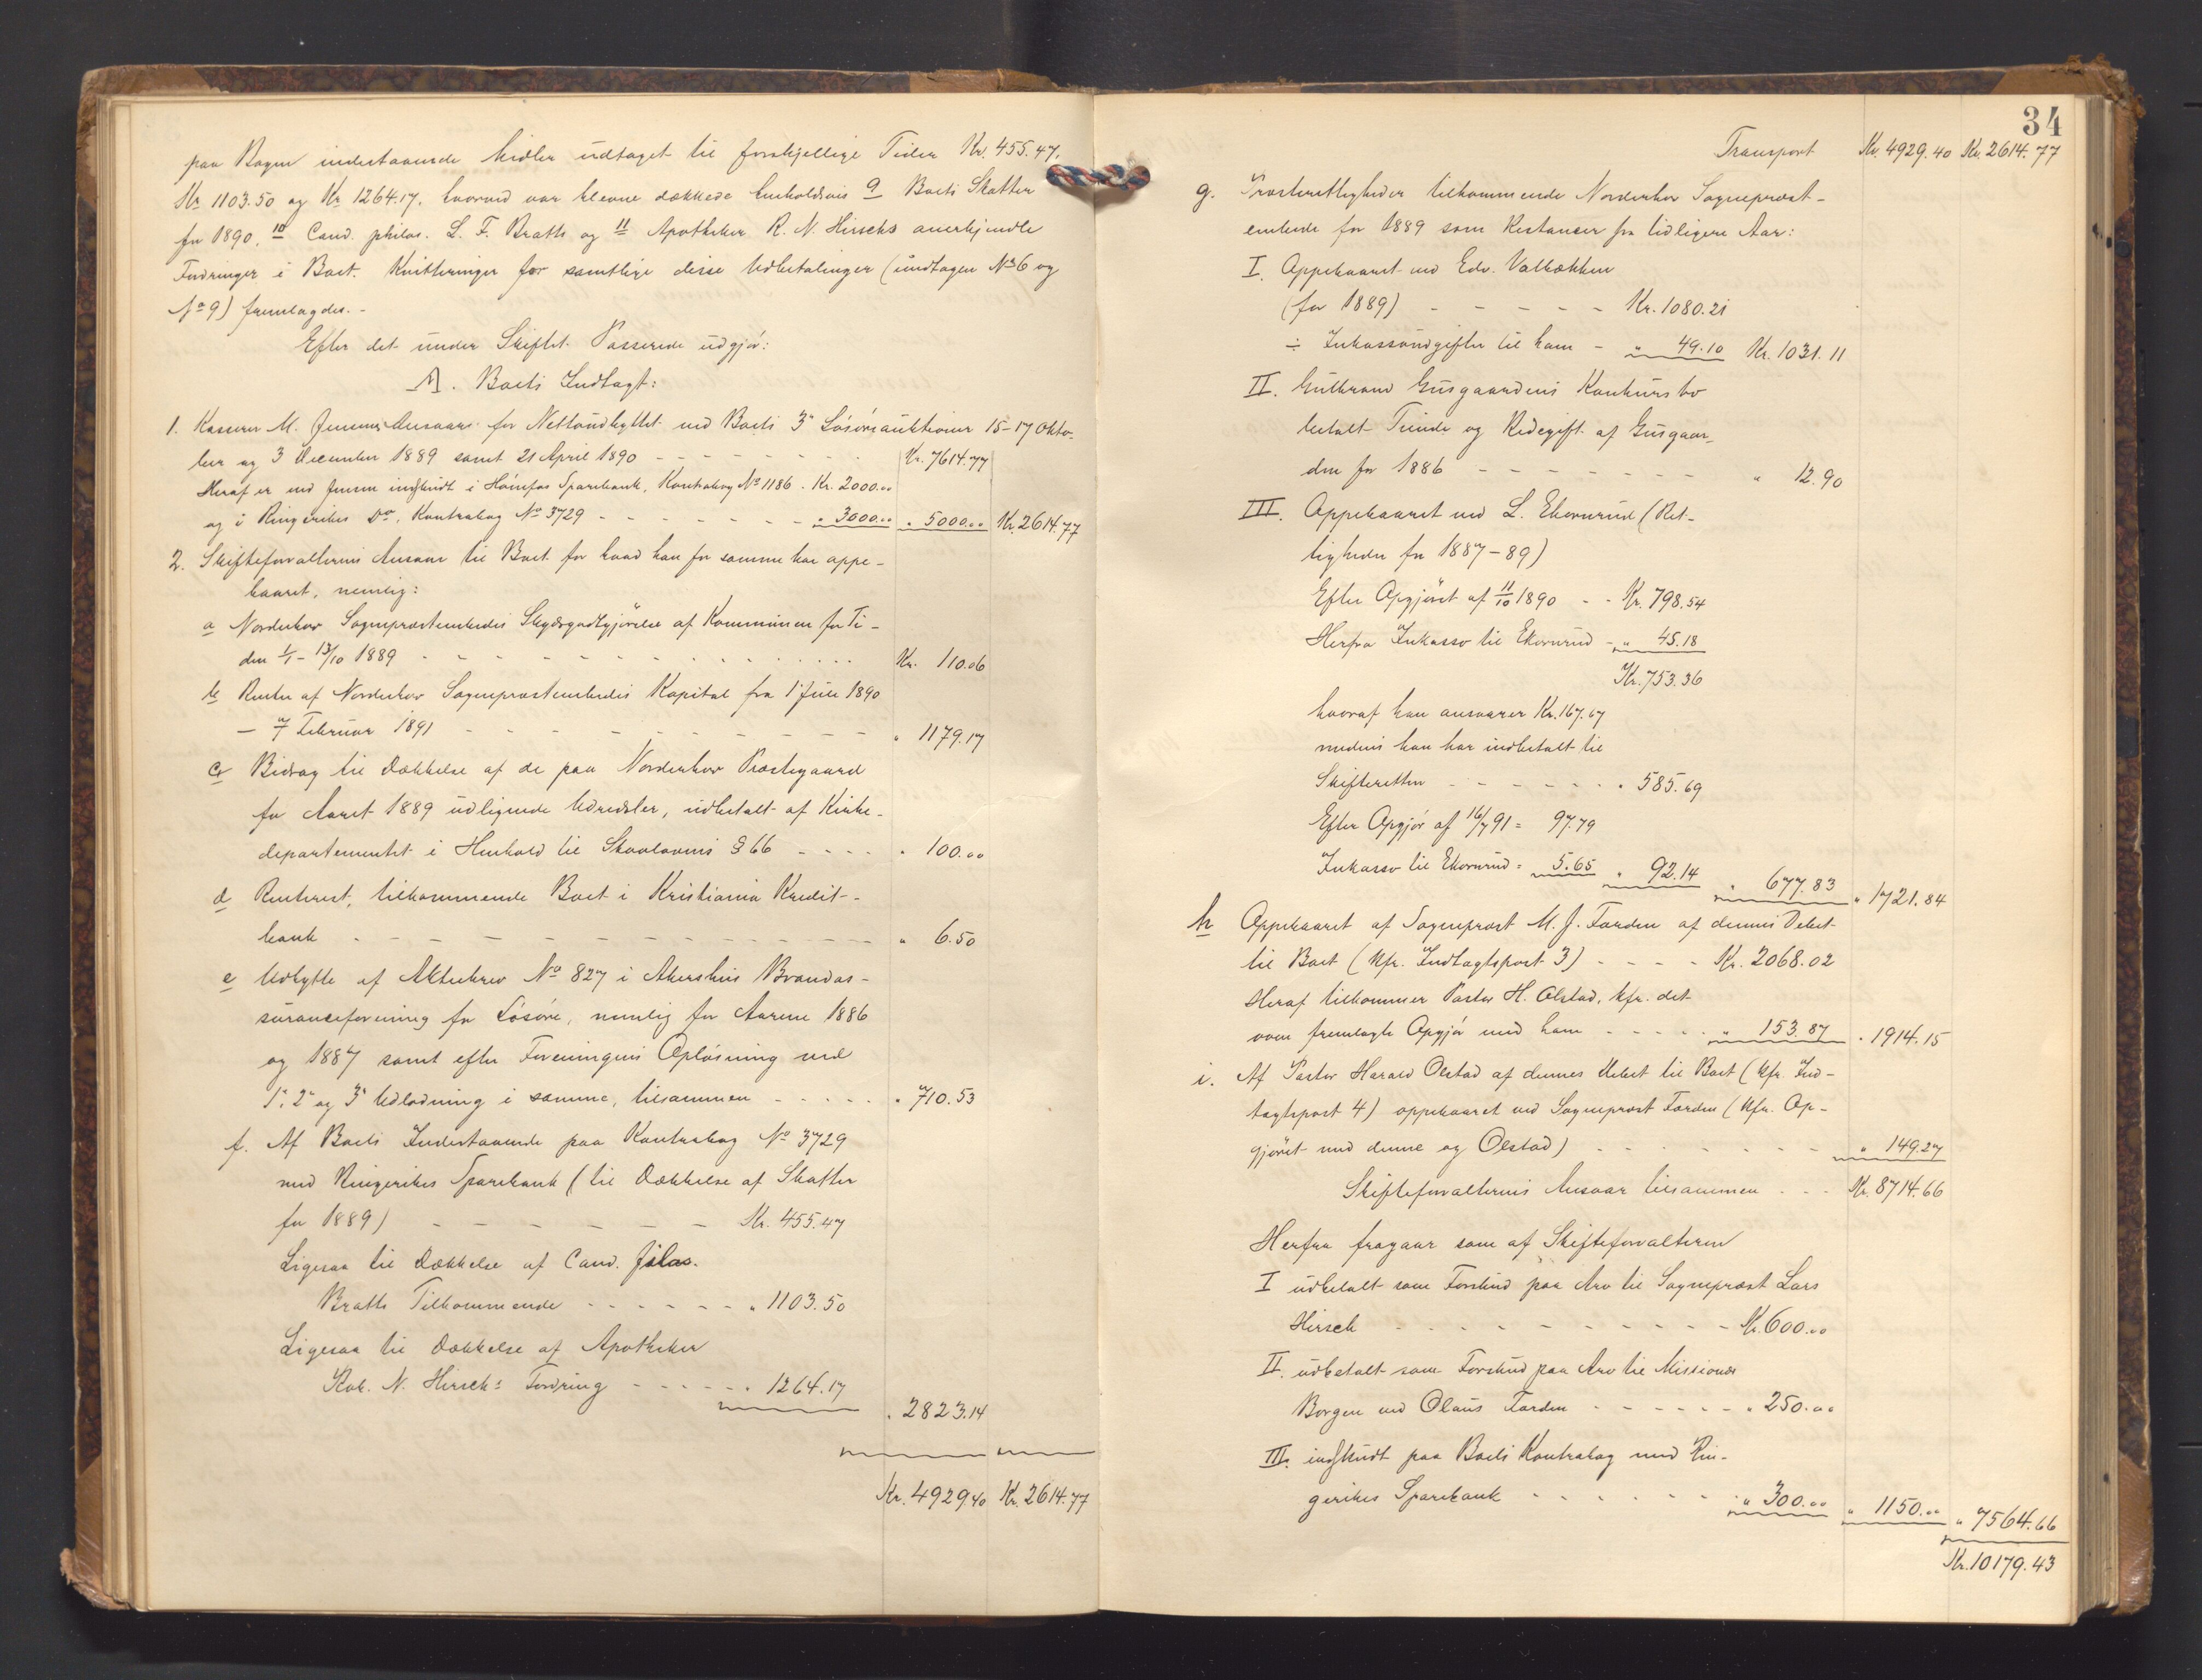 paa Bogen indestaaende Midler udtaget til forskjellige Tider Kr. 455.47,
Kr 1103.50 og Kr 1264.17, hvorved var blevne dækkede henholdsvis 9 Boets Skatter
for 1890, 10 Cand. philos. L. F. Braths og 11 Apotheker R. N. Hirschs anerkjendte
Fordringer i Boet. Kvitteringer for samtlige disse Udbetalinger (undtagen No 6 og
No 9) fremlagdes. -
Efter det under Skiftet Passerede udgjør:
A. Boets Indtægt:
1. Kasserer M. Jensens Ansvar for Nettoudbyttet ved Boets 3de Løsøreauktioner 15-17 Okto-
ber og 3 December 1889 samt 21 April 1890 - - - Kr. 7614.77
Heraf er ved Jensen indskudt i Hønefos Sparebank, Kontrabog No 1186 . Kr. 2000.00
og i Ringerikes Do, Kontrabog No 3729 - - - " 3000.00 " 5000.00 Kr. 2614.77
2. Skifteforvalterens Ansvar til Boet for hvad han for samme har oppe-
baaret, nemlig:
a Norderhov Sogneprestembedes Skydsgodtgjørelse af Kommunen for Ti-
den 1/1 - 13/10 1889 - - - Kr. 110.06
b Renter af Norderhov Sogneprestembedes Kapital fra 1 Juli 1890
- 7 Februar 1891 - - - " 1179.17
c Bidrag til Dækkelse af de paa Norderhov Præstegaard
for Aaret 1889 udlignede Udredsler, udbetalt af Kirke-
departementet i Henhold til Skovlovens § 66 - - - " 100.00
d Renterest, tilkommende Boet i Kristiania Kredit-
bank - - - " 6.50
e Udbytte af Aktiebrev No 827 i Akershus Brandas-
suranceforening for Løsøre, nemlig for Aarene 1886
og 1887 samt efter Foreningens Opløsning ved
1", 2" og 3" Udlodning i samme, tilsammen - - - " 710.53
f. Af Boets Indestaaende paa Kontrabog No 3729
med Ringerikes Sparebank (til Dækkelse af Skatter
for 1889) - - - Kr. 455.47
Ligesaa til Dækkelse af Cand. filos.
Braths Tilkommende - - - " 1103.50
Ligesaa til Dækkelse af Apotheker
Rob. N. Hirschs Fordring - - - " 1264.17
" 2823.14
Kr. 4929.40 Kr. 2614.77
34
Transport Kr. 4929.40 Kr. 2614.77
g. Præsterettigheder tilkommende Norderhov Sogneprest-
embede for 1889 som Restancer fra tidligere Aar:
I. Oppebaaret ved Edv. Valbækken
(for 1889) - - - Kr. 1080.21
÷ Inkassoudgifter til ham - " 49.10 Kr. 1031.11
II. Gulbrand Gusgaardens Konkursbo
betalt Tiende og Redegift af Gusgaar-
den for 1886 - - - " 12.90
III. Oppebaaret ved L. Ekornrud (Ret-
tigheder for 1887-89)
Efter Opgjøret af 11/10 1890 - - Kr. 798.54
Herfra Inkasso til Ekornrud - " 45.18
Kr. 753.36
hvoraf han ansvarer Kr. 167.67
medens han har indbetalt til
Skifteretten - - - " 585.69
Efter Opgjør af 16/7 91 = 97.79
Inkasso til Ekornrud = 5.65 " 92.14 " 677.83 " 1721.84
h Oppebaaret af Sogneprest M. J. Færden af dennes Debet
til Boet (kfr. Indtægtspost 3) - - - Kr. 2068.02
Heraf tilkommer Pastor H. Olstad, kfr. det
oven fremlagte Opgjør med ham - - - " 153.87 " 1914.15
i. Af Pastor Harald Olstad af dennes Debet til Boet (kfr. Ind-
tægtspost 4) oppebaaret ved Sogneprest Færden (kfr. Op-
gjøret med denne og Olstad) - - - " 149.27
Skifteforvalterens Ansvar tilsammen - - - Kr. 8714.66
Herfra fragaar som af Skifteforvalteren
I udbetalt som Forskud paa Arv til Sogneprest Lars
Hirsch - - - Kr. 600.00
II. udbetalt som Forskud paa Arv til Missionær
Borgen ved Olaus Færden - - - " 250.00
III. indskudt paa Boets Kontrabog med Rin-
gerikes Sparebank - - - " 300.00 " 1150.00 " 7564.66
Kr. 10179.43